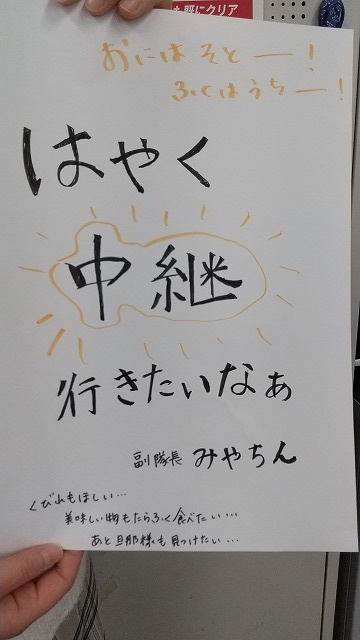 既にクリア
おにはそとー！
ふくはうちー！
はやく
中継
行きたいなぁ
副隊長 みやちん
くびれもほしい…
美味しい物もたらふく食べたい…
あと旦那様も見つけたい…